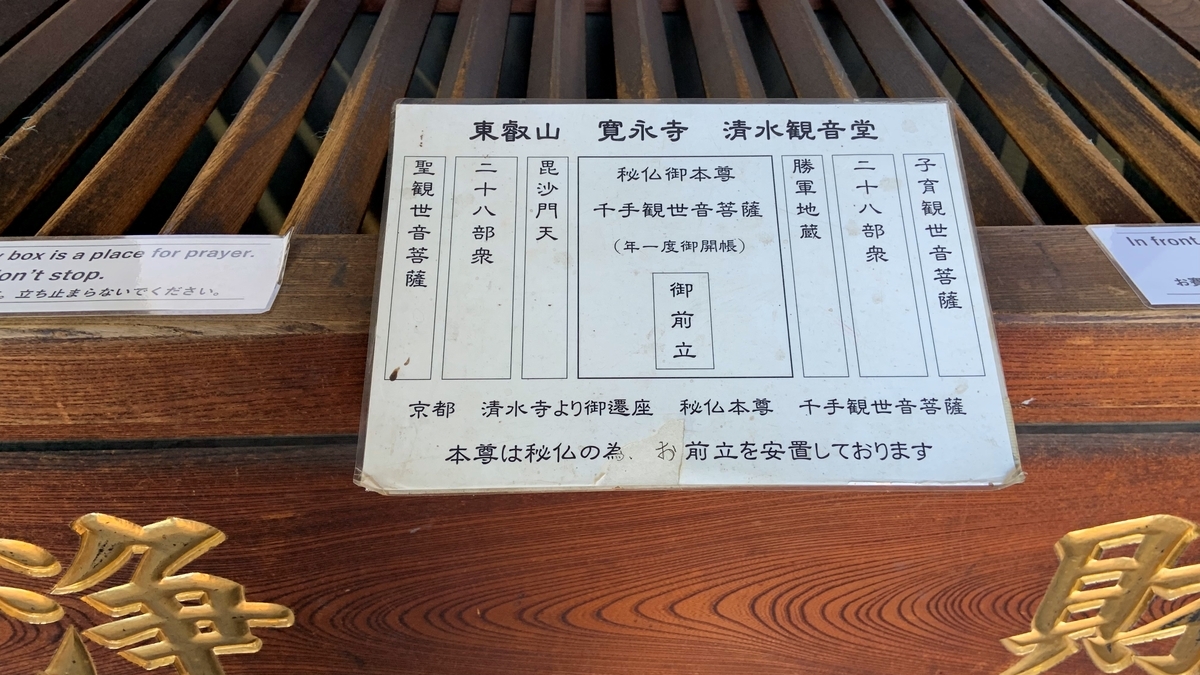 東叡山 寛永寺 清水観音堂
子育観世音菩薩
二十八部衆
勝軍地蔵
秘仏御本尊
千手観世音菩薩
(年一度御開帳)
御前立
毘沙門天
二十八部衆
聖観世音菩薩
京都 清水寺より御遷座 秘仏本尊 千手観世音菩薩
本尊は秘仏の為、お前立を安置しております
box is a place for prayer.
on't stop.
。立ち止まらないでください。
In front
お
浄
財